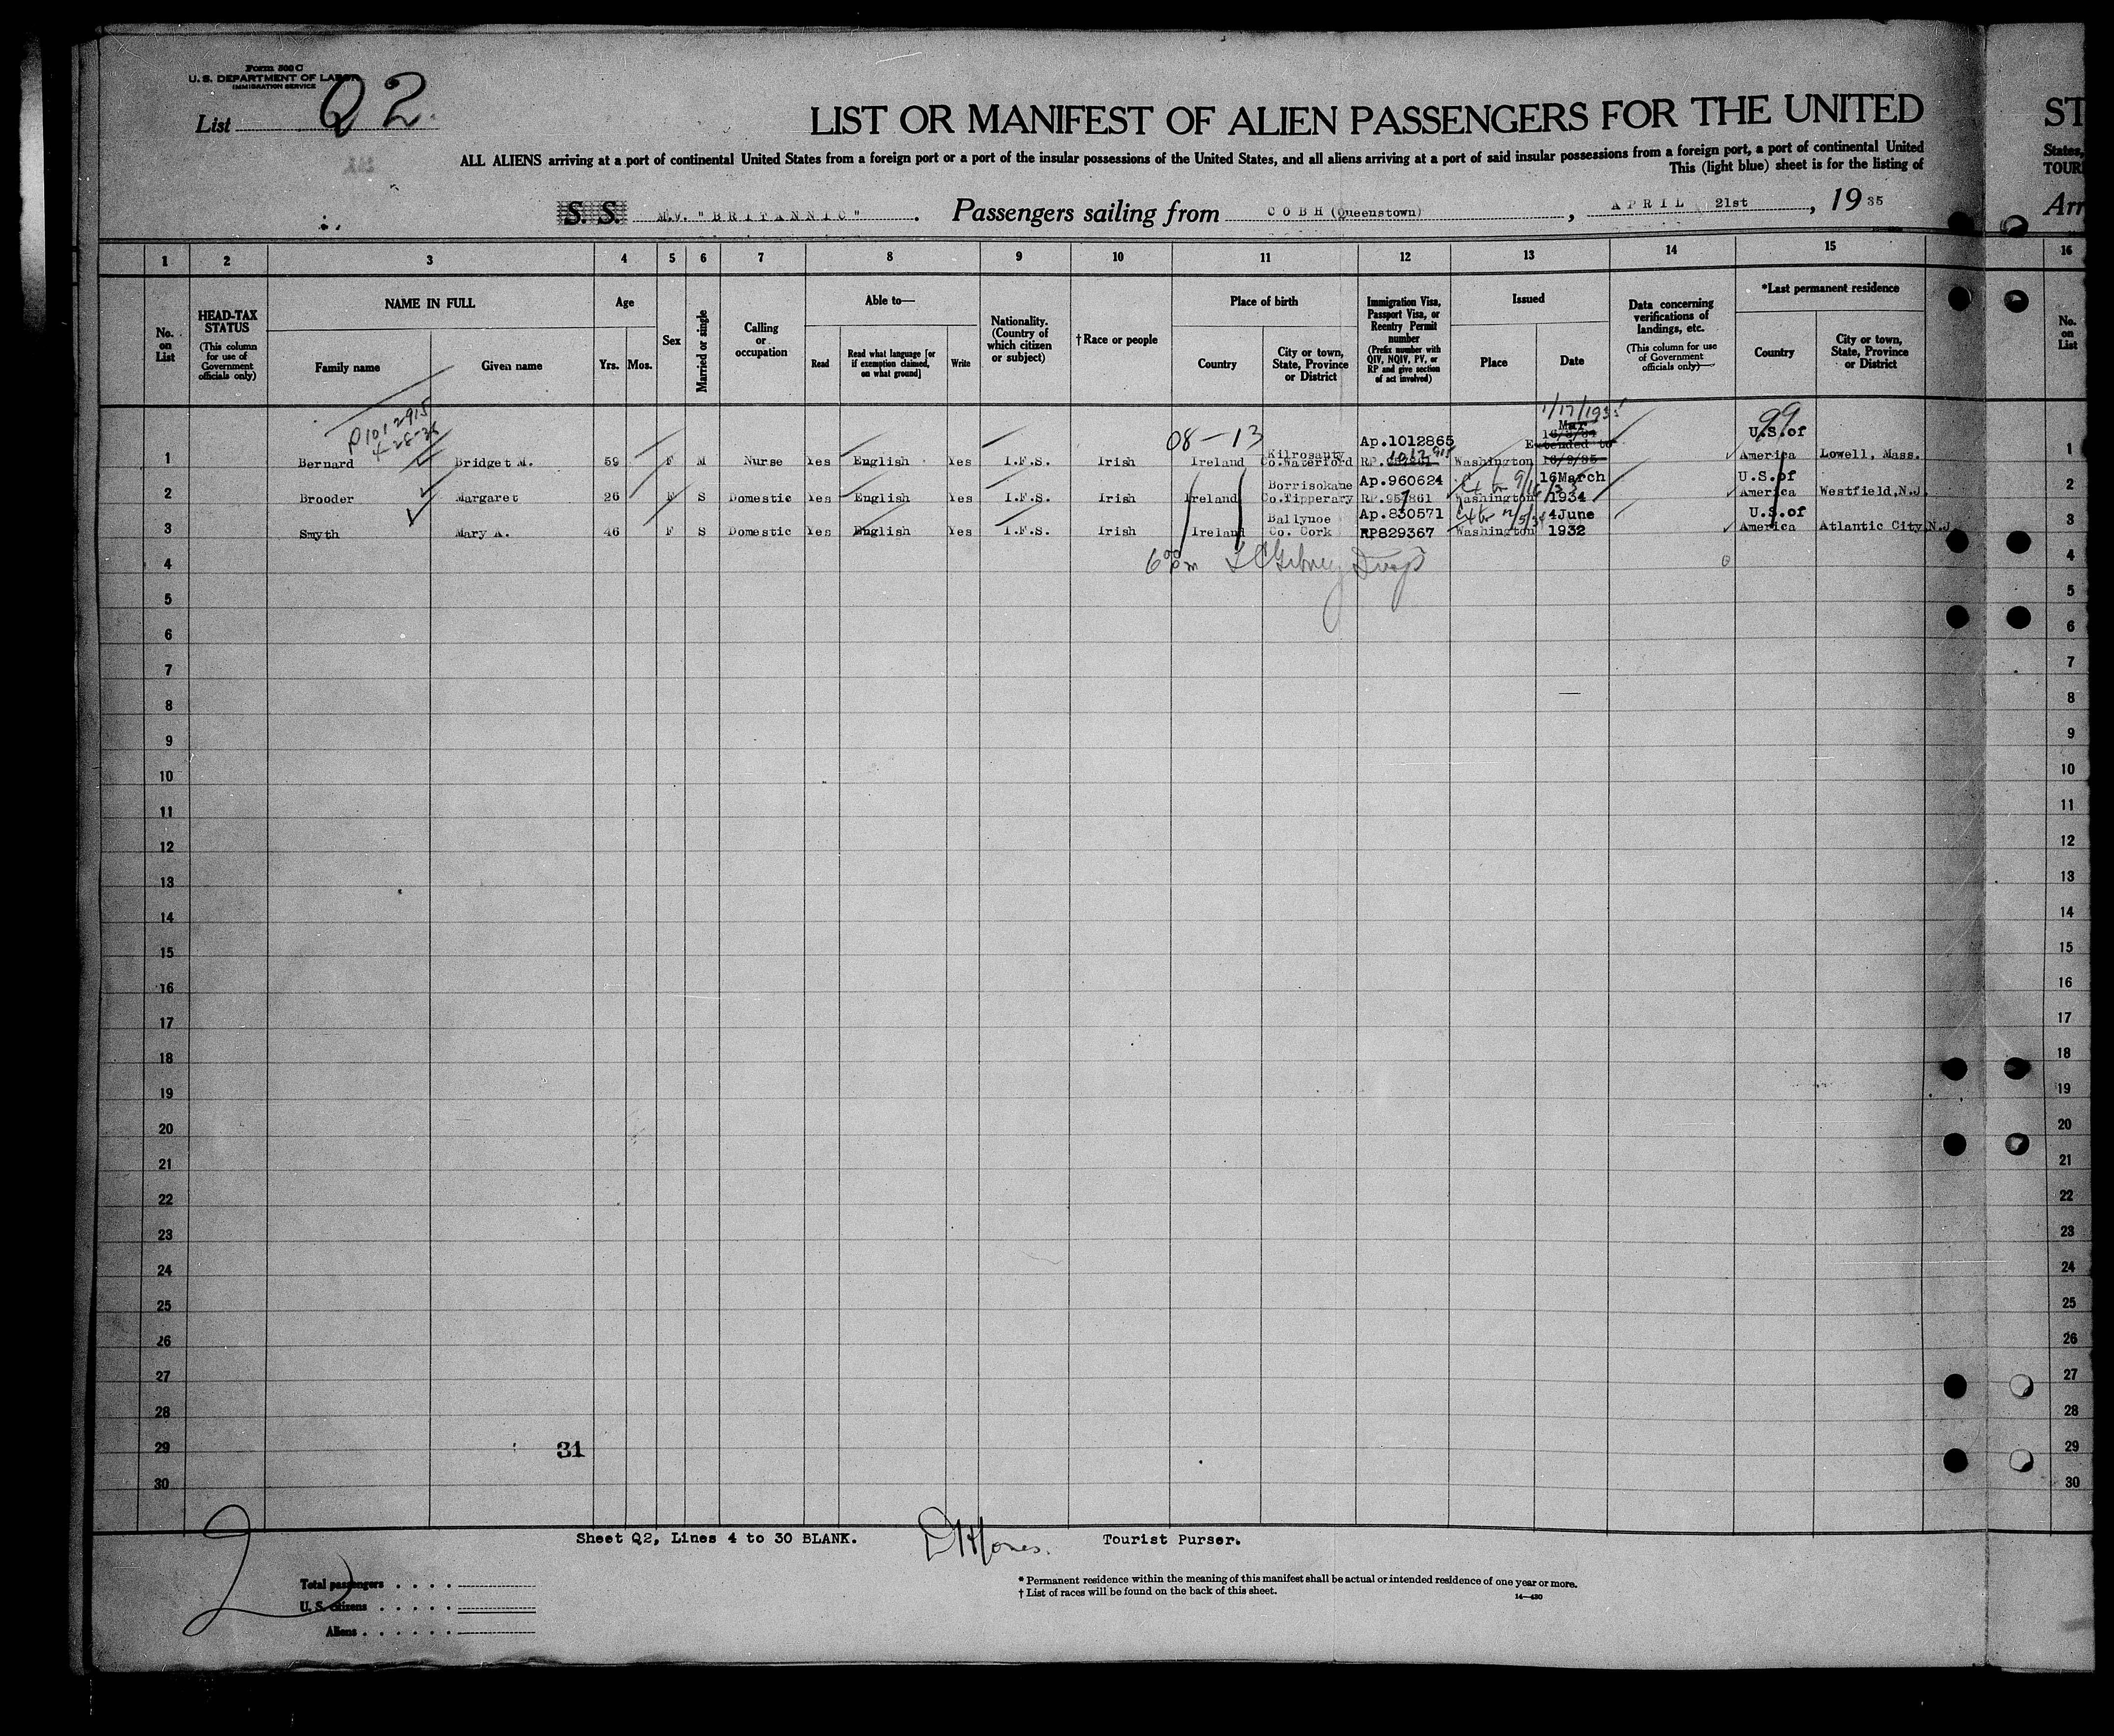 Form 500 C
U. S. DEPARTMENT OF LABOR
IMMIGRATION SERVICE
List Q2.
LIST OR MANIFEST OF ALIEN PASSENGERS FOR THE UNITED
ST
ALL ALIENS arriving at a port of continental United States from a foreign port or a port of the insular possessions of the United States, and all aliens arriving at a port of said insular possessions from a foreign port, a port of continental United
States,
This (light blue) sheet is for the listing of
TOUR
S. S. M.V. "BRITANNIC". Passengers sailing from COBH (Queenstown), APRIL 21st, 19 35
Arr
1 2 3 4 5 6 7 8 9 10 11 12 13 14 15 16
No. on List
HEAD-TAX STATUS
(This column for use of Government officials only)
NAME IN FULL
Family name
Given name
Age
Yrs. Mos.
Sex
Married or single
Calling or occupation
Able to—
Read
Read what language [or if exemption claimed, on what ground]
Write
Nationality. (Country of which citizen or subject)
† Race or people
Place of birth
Country
City or town, State, Province or District
Immigration Visa, Passport Visa, or Reentry Permit number
(Prefix number with QIV, NQIV, PV, or RP and give section of act involved)
Issued
Place
Date
Data concerning verifications of landings, etc.
(This column for use of Government officials only)
*Last permanent residence
Country
City or town, State, Province or District
No. on List
P1012915
4-28-36
08-13
1/17/1935
99
1 Bernard Bridget M. 59 F M Nurse Yes English Yes I.F.S. Irish Ireland Kilrosanty Co.Waterford Ap.1012865 RP. 1012915 Washington Mar Extended to 16/9/35 U.S.of America Lowell, Mass. 1
2 Brooder Margaret 26 F S Domestic Yes English Yes I.F.S. Irish Ireland Borrisokane Co.Tipperary Ap.960624 RP.957861 Washington 16March 1934 U.S.of America Westfield,N.J. 2
3 Smyth Mary A. 46 F S Domestic Yes English Yes I.F.S. Irish Ireland Ballynoe Co. Cork Ap.830571 RP829367 Washington 4June 1932 U.S.of America Atlantic City,N.J. 3
4 4
5 5
6 6
7 7
8 8
9 9
10 10
11 11
12 12
13 13
14 14
15 15
16 16
17 17
18 18
19 19
20 20
21 21
22 22
23 23
24 24
25 25
26 26
27 27
28 28
29 31 29
30 30
2
Sheet Q2, Lines 4 to 30 BLANK. Tourist Purser.
Total passengers
U. S. citizens
Aliens
* Permanent residence within the meaning of this manifest shall be actual or intended residence of one year or more.
† List of races will be found on the back of this sheet.
14—430